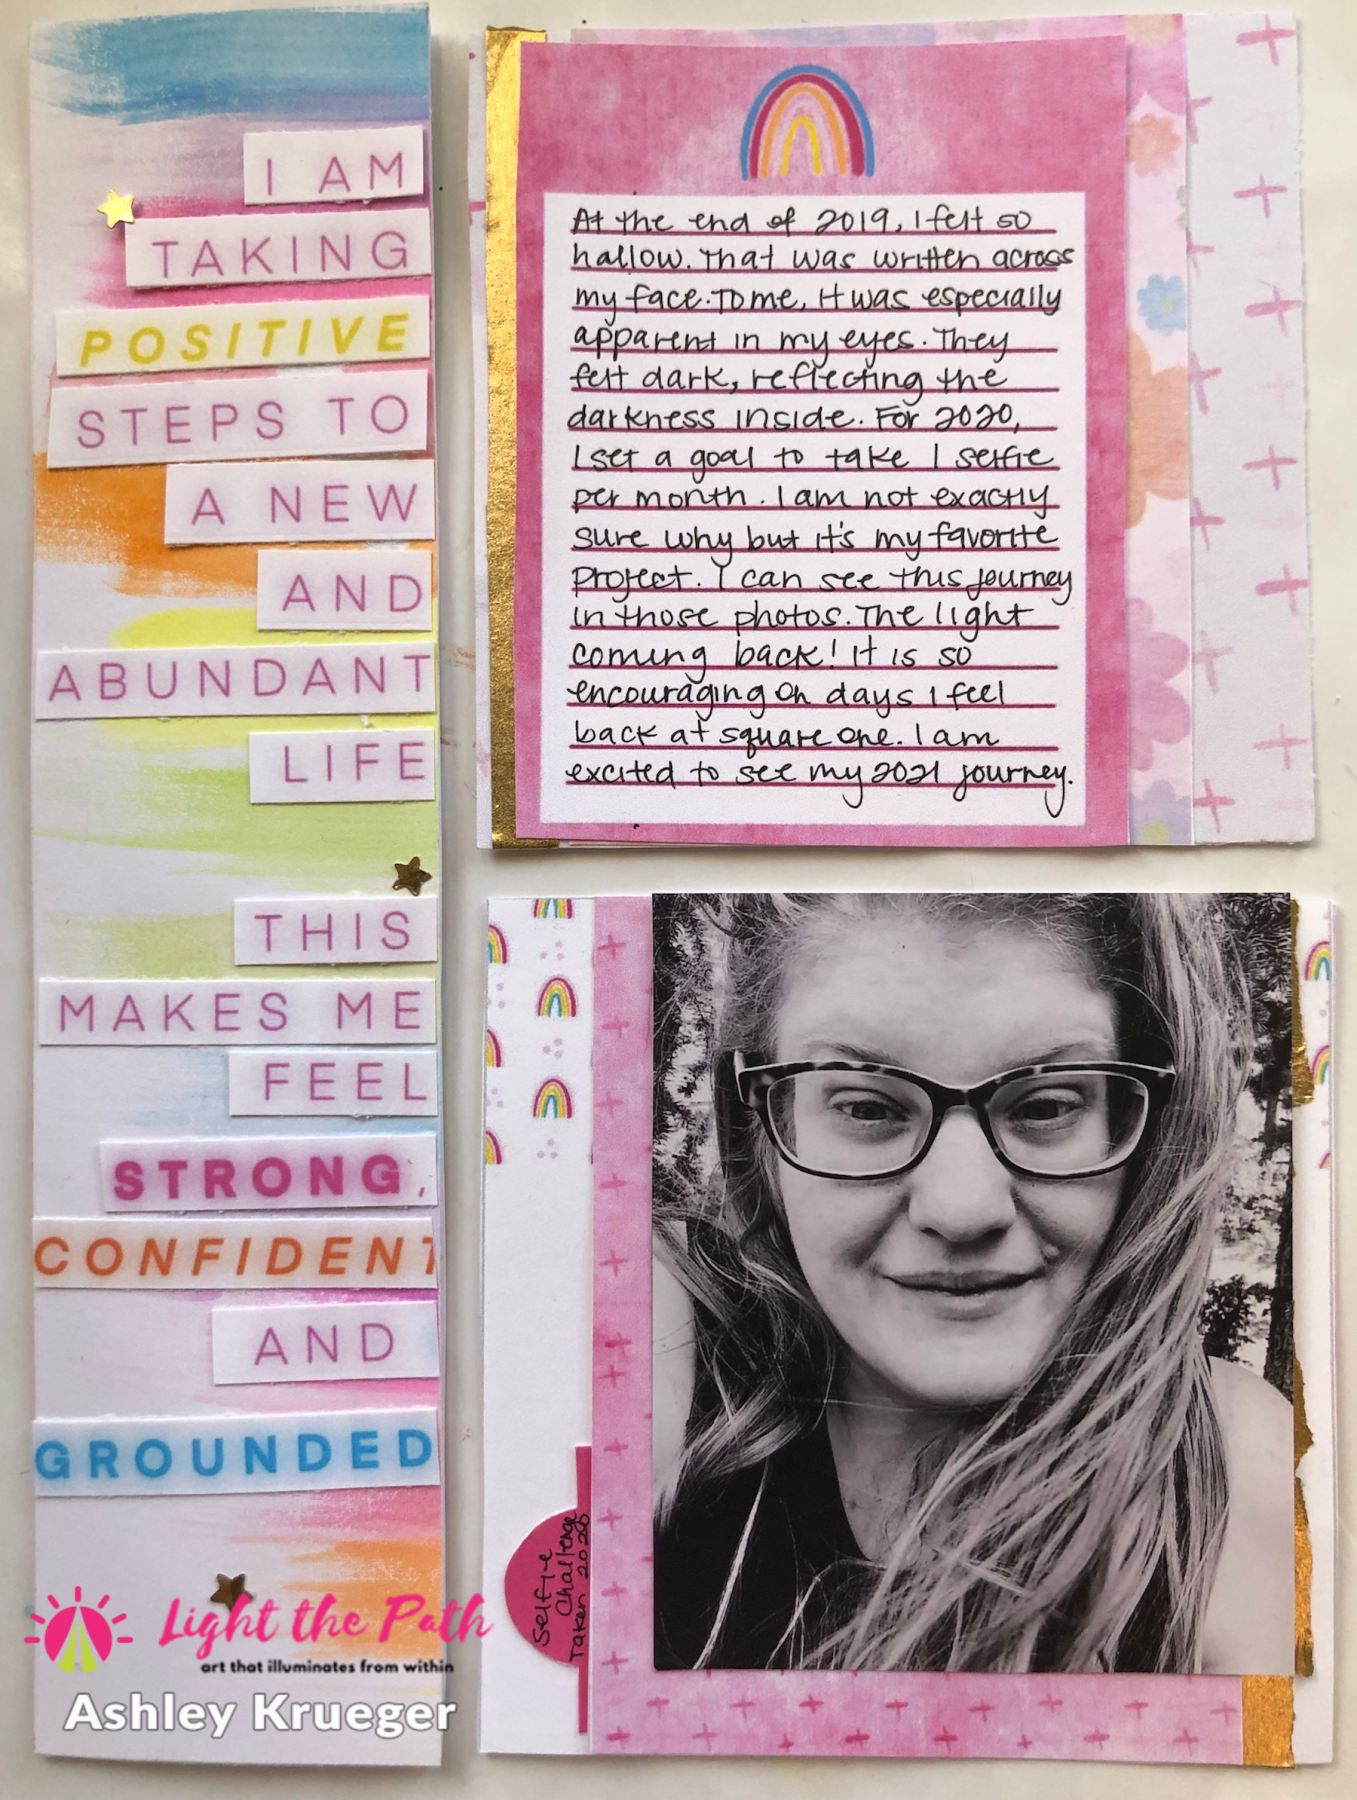 I AM
TAKING
POSITIVE
STEPS TO
A NEW
AND
ABUNDANT
LIFE
THIS
MAKES ME
FEEL
STRONG,
CONFIDENT
AND
GROUNDED
At the end of 2019, I felt so
hallow. That was written across
my face. To me, it was especially
apparent in my eyes. They
felt dark, reflecting the
darkness inside. For 2020,
I set a goal to take 1 selfie
per month. I am not exactly
sure why but it's my favorite
project. I can see this journey
in those photos. The light
coming back! It is so
encouraging on days I feel
back at square one. I am
excited to see my 2021 journey.
Selfie
Challenge
Taken 2020
Light the Path
art that illuminates from within
Ashley Krueger